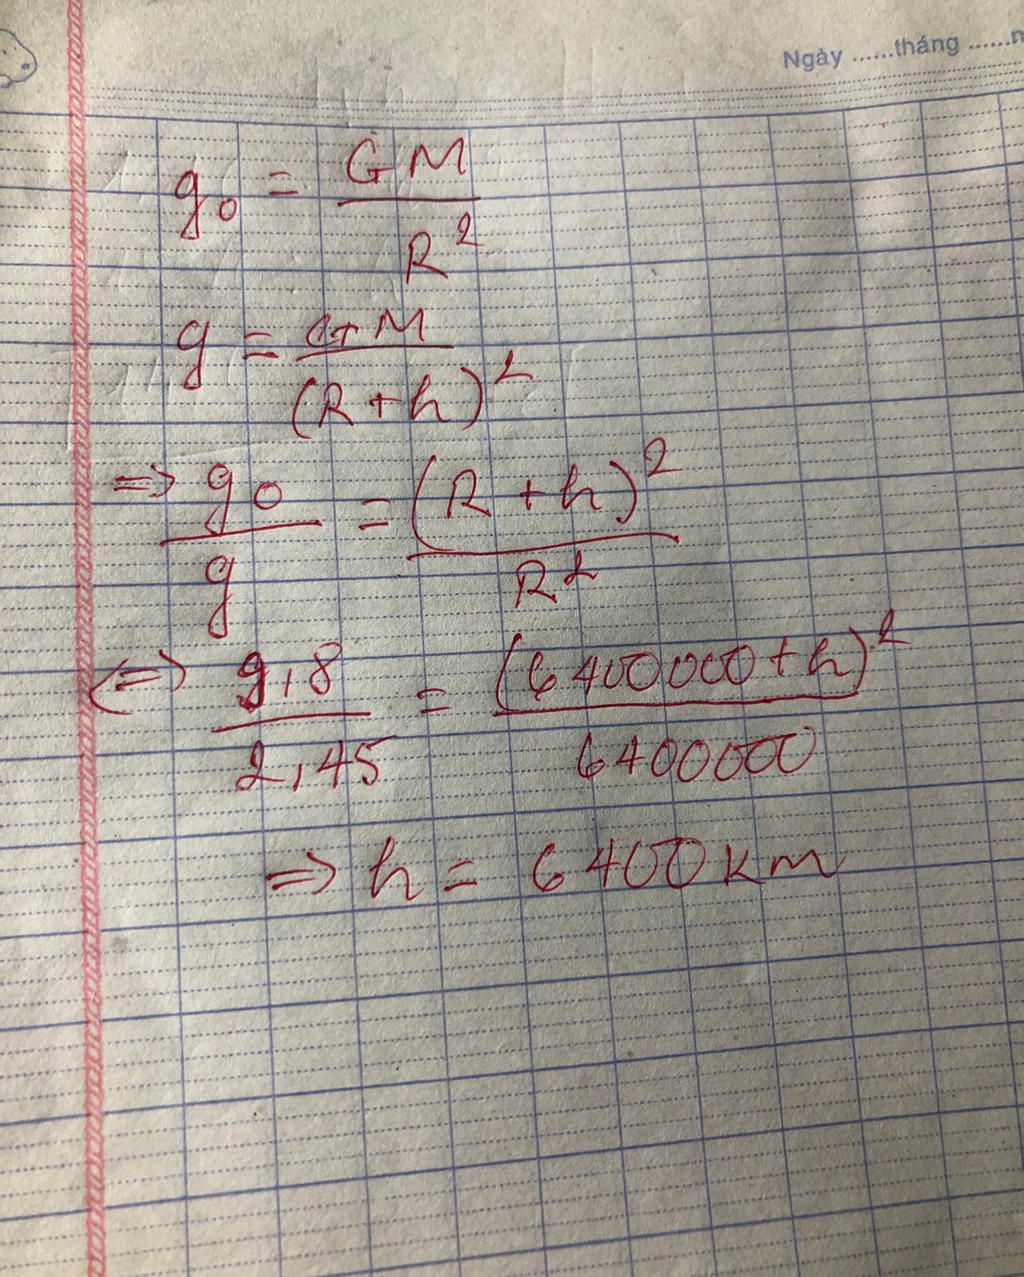 Ngày ......tháng ......n
g₀ = GM / R²
g = GM / (R+h)²
=> g₀ / g = (R+h)² / R²
<=> 9,8 / 2,45 = (6400000+h)² / 6400000
=> h = 6400km